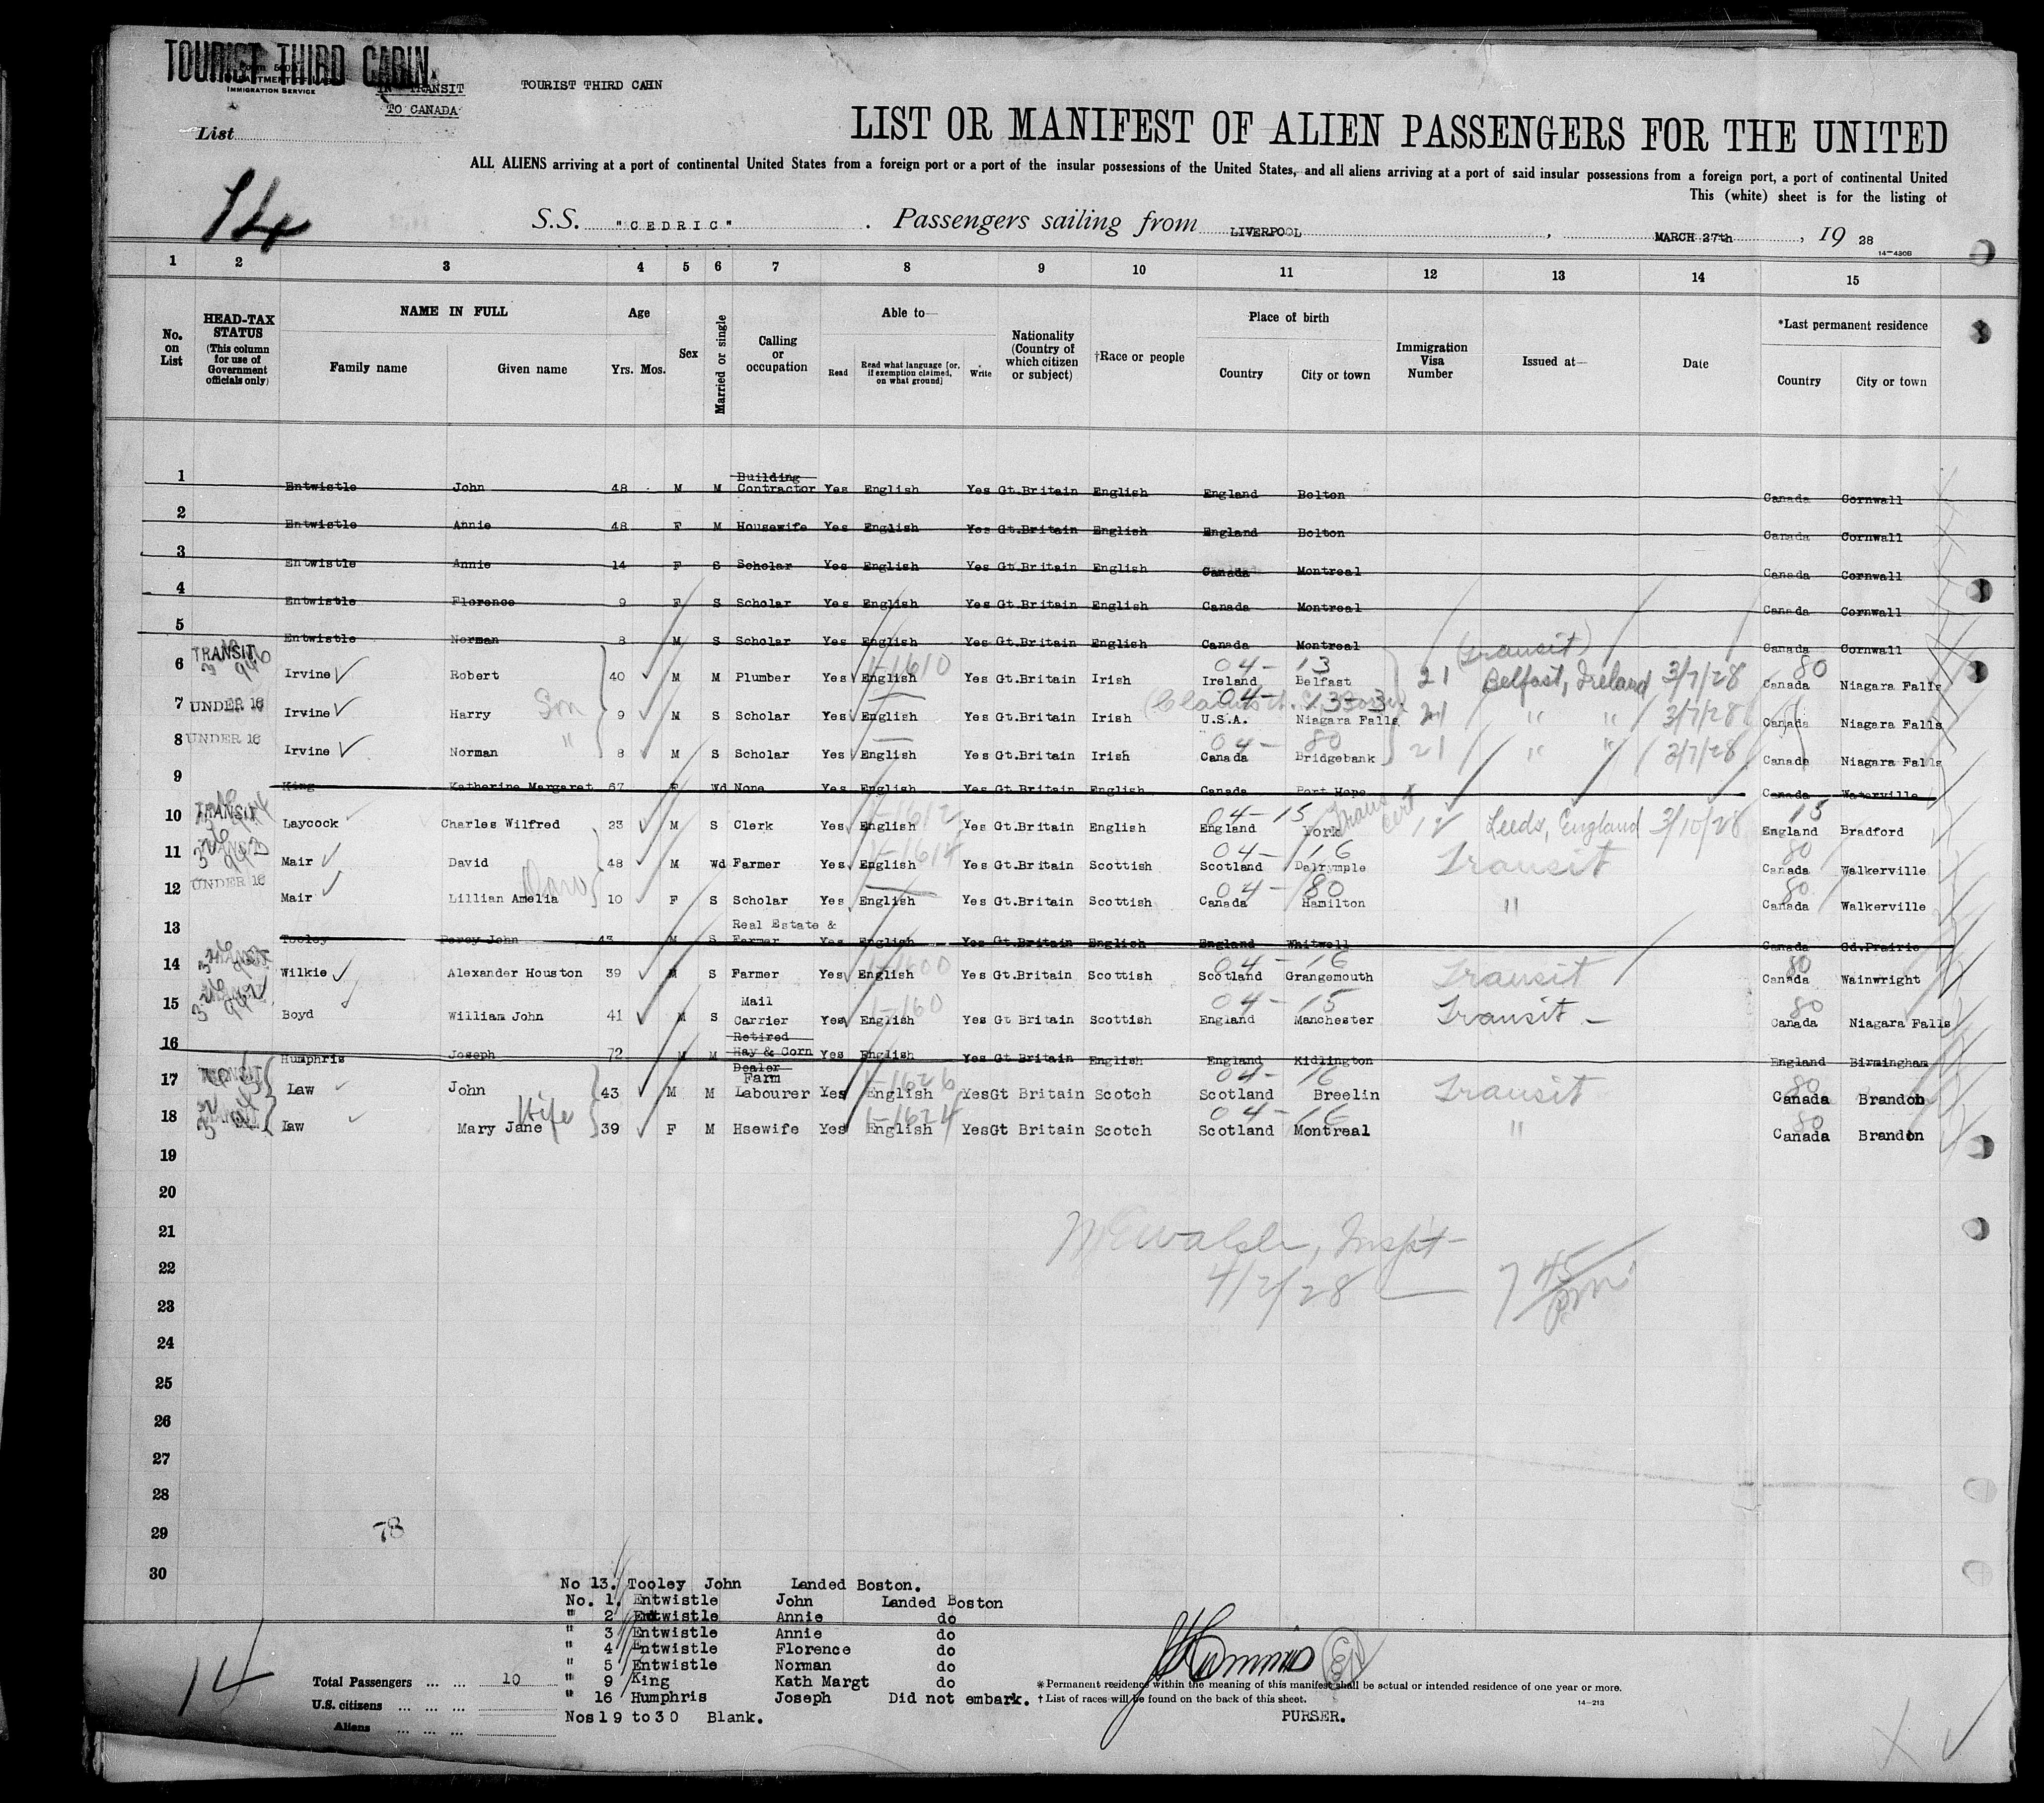 TOURIST THIRD CABIN
IMMIGRATION SERVICE
IN TRANSIT
TO CANADA
TOURIST THIRD CABIN
List
14
LIST OR MANIFEST OF ALIEN PASSENGERS FOR THE UNITED
ALL ALIENS arriving at a port of continental United States from a foreign port or a port of the insular possessions of the United States, and all aliens arriving at a port of said insular possessions from a foreign port, a port of continental United
This (white) sheet is for the listing of
S.S. "CEDRIC" . Passengers sailing from LIVERPOOL , MARCH 27th , 19 28
14—430B
1 2 3 4 5 6 7 8 9 10 11 12 13 14 15
No. on List
HEAD-TAX STATUS (This column for use of Government officials only)
NAME IN FULL
Family name Given name
Age
Yrs. Mos.
Sex
Married or single
Calling or occupation
Able to—
Read Read what language [or, if exemption claimed, on what ground] Write
Nationality (Country of which citizen or subject)
†Race or people
Place of birth
Country City or town
Immigration Visa Number
Issued at—
Date
*Last permanent residence
Country City or town
1 Entwistle John 48 M M Building Contractor Yes English Yes Gt.Britain English England Bolton Canada Cornwall
2 Entwistle Annie 48 F M Housewife Yes English Yes Gt.Britain English England Bolton Canada Cornwall
3 Entwistle Annie 14 F S Scholar Yes English Yes Gt.Britain English Canada Montreal Canada Cornwall
4 Entwistle Florence 9 F S Scholar Yes English Yes Gt.Britain English Canada Montreal Canada Cornwall
5 Entwistle Norman 8 M S Scholar Yes English Yes Gt.Britain English Canada Montreal Canada Cornwall
(Transit)
6 TRANSIT Irvine Robert 40 M M Plumber Yes English 1-1610 Yes Gt.Britain Irish 04- 13 Ireland Belfast 21 Belfast, Ireland 3/7/28 80 Canada Niagara Falls
7 UNDER 16 Irvine Harry Son 9 M S Scholar Yes English Yes Gt.Britain Irish U.S.A. Niagara Falls 21 " " 3/7/28 Canada Niagara Falls
8 UNDER 16 Irvine Norman " 8 M S Scholar Yes English Yes Gt.Britain Irish 04- 80 Canada Bridgebank 21 " " 3/7/28 Canada Niagara Falls
9 King Katherine Margaret 67 F Wd None Yes English Yes Gt.Britain English Canada Port Hope Canada Waterville
10 TRANSIT Laycock Charles Wilfred 23 M S Clerk Yes English 1-1612 Yes Gt.Britain English 04-15 England York Trans cert 12 Leeds, England 3/10/28 15 England Bradford
11 Mair David 48 M Wd Farmer Yes English 1-1614 Yes Gt.Britain Scottish 04- 16 Scotland Dalrymple Transit 80 Canada Walkerville
12 UNDER 16 Mair Lillian Amelia 10 F S Scholar Yes English Yes Gt.Britain Scottish 04-80 Canada Hamilton " 80 Canada Walkerville
13 Tooley Percy John 43 M S Real Estate & Farmer Yes English Yes Gt.Britain English England Whitwell Canada Gd.Prairie
14 Wilkie Alexander Houston 39 M S Farmer Yes English 1-1600 Yes Gt.Britain Scottish 04- 16 Scotland Grangemouth Transit 80 Canada Wainwright
15 Boyd William John 41 M S Mail Carrier Yes English Yes Gt Britain Scottish 04- 15 England Manchester Transit - 80 Canada Niagara Falls
16 Humphris Joseph 72 M M Retired Hay & Corn Dealer Yes English Yes Gt Britain English England Kidlington England Birmingham
17 Law John 43 M M Farm Labourer Yes English 1-1626 Yes Gt Britain Scotch 04- 16 Scotland Breelin Transit 80 Canada Brandon
18 Law Mary Jane Wife 39 F M Hsewife Yes English 1-1624 Yes Gt Britain Scotch 04-16 Scotland Montreal " 80 Canada Brandon
19
20
21
22
23
24
25
26
27
28
29
30
Walsh, Inspt
4/2/28 — 7 45 pm
78
No 13. Tooley John Landed Boston.
No. 1. Entwistle John Landed Boston
" 2 Entwistle Annie do
" 3 Entwistle Annie do
" 4 Entwistle Florence do
" 5 Entwistle Norman do
" 9 King Kath Margt do
" 16 Humphris Joseph Did not embark.
Nos19 to30 Blank.
14
Total Passengers ... ... 10
U.S. citizens ... ... ...
Aliens ... ... ...
*Permanent residence within the meaning of this manifest shall be actual or intended residence of one year or more.
†List of races will be found on the back of this sheet.
14—213
PURSER.